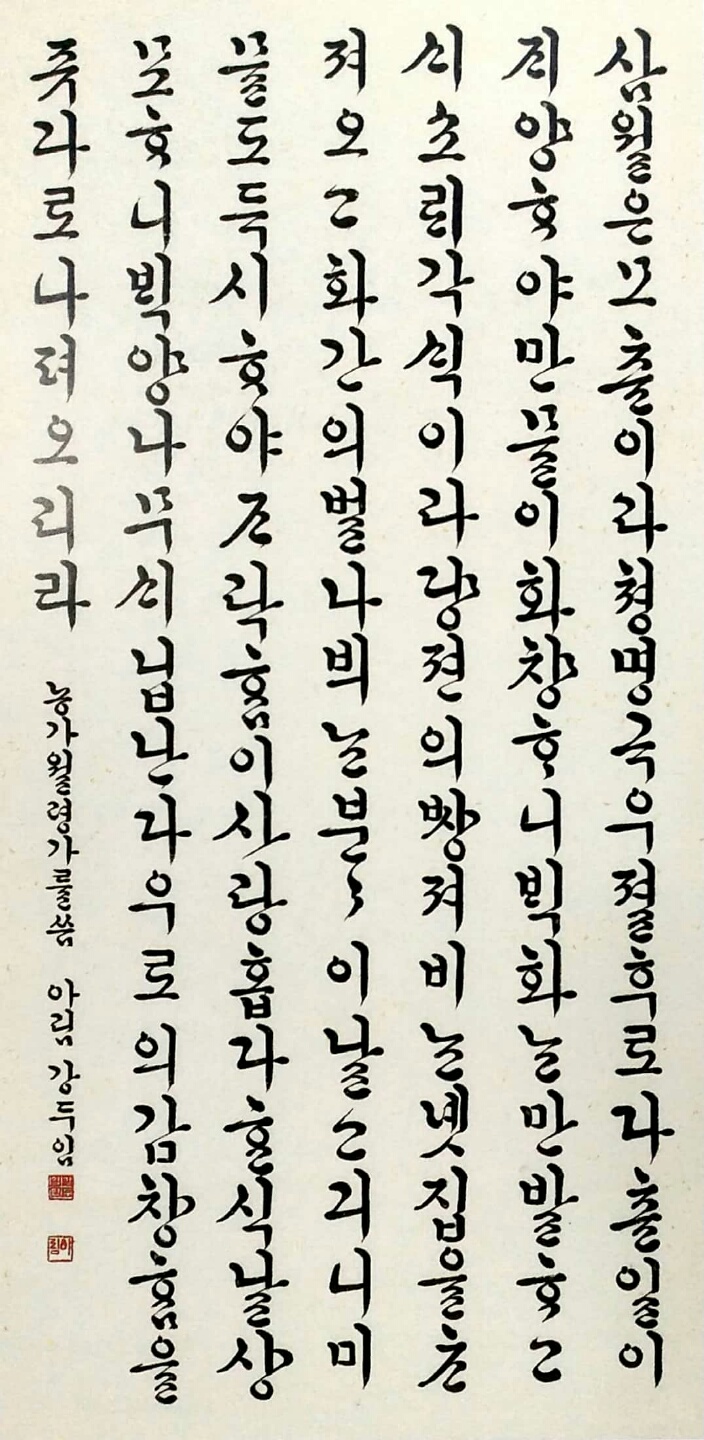 삼월은모츈이라쳥명곡우졀후로다츈일이
ᄌᆡ양ᄒᆞ야만물이화창ᄒᆞ니ᄇᆡᆨ화ᄂᆞᆫ만발ᄒᆞ고
ᄉᆡ소ᄅᆡ각ᄉᆡᆨ이라당젼의ᄡᅡᆼ져비ᄂᆞᆫ녯집을ᄎᆞ
져오고화간의벌나븨ᄂᆞᆫ분〻이날고기니미
물도득시ᄒᆞ야ᄌᆞ락ᄒᆞᆷ이사랑홉다ᄒᆞᆫ식날상
묘ᄒᆞ니ᄇᆡᆨ양나무ᄉᆡ닙난다우로의감창ᄒᆞᆷ을
쥬과로나펴오리라
농가월령가를씀 아림 강두임